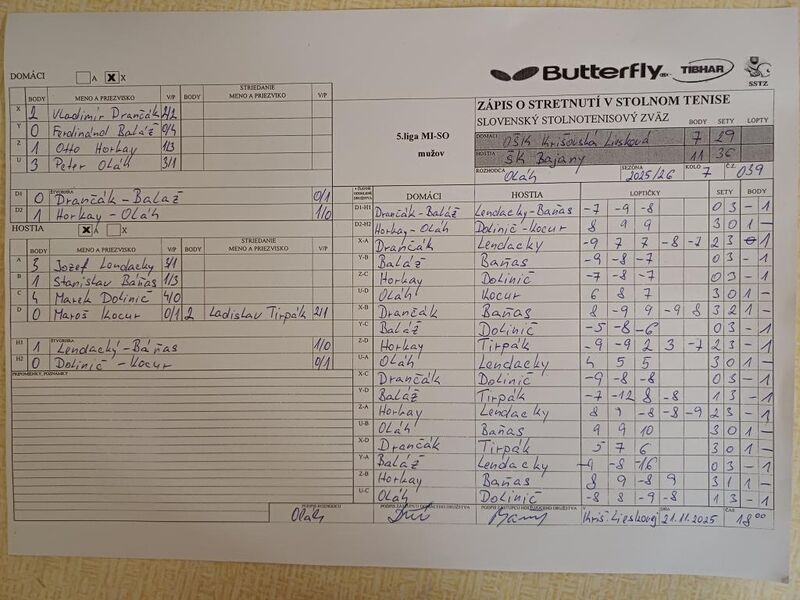 DOMÁCI A X X
Butterfly TIBHAR SSTZ
STRIEDANIE
BODY MENO A PRIEZVISKO V/P BODY MENO A PRIEZVISKO V/P
X 2 Vladimír Drančák 2/2
Y 0 Ferdinánd Baláž 0/4
Z 1 Otto Horkay 1/3
U 3 Peter Oláh 3/1
5.liga MI-SO
mužov
ZÁPIS O STRETNUTÍ V STOLNOM TENISE
SLOVENSKÝ STOLNOTENISOVÝ ZVÄZ BODY SETY LOPTY
DOMÁCI OŠK Krišovská Liesková 7 29
HOSTIA ŠK Bajany 11 36
ROZHODCA Oláh SEZÓNA 2025/26 KOLO 7 Č.Z. 039
D1 ŠTVORHRA 0 Drančák - Baláž 0/1
D2 1 Horkay - Oláh 1/0
HOSTIA X A X
STRIEDANIE
BODY MENO A PRIEZVISKO V/P BODY MENO A PRIEZVISKO V/P
A 3 Jozef Lendacky 3/1
B 1 Stanislav Báňas 1/3
C 4 Marek Dolinič 4/0
D 0 Maroš Kocur 0/1 2 Ladislav Tirpák 2/1
H1 ŠTVORHRA 1 Lendacký - Báňas 1/0
H2 0 Dolinič - Kocur 0/1
PRIPOMIENKY, POZNÁMKY
DOMÁCI HOSTIA LOPTIČKY SETY BODY
D1-H1 Drančák-Baláž Lendacky-Baňas -7 -9 -8 0 3 - 1
D2-H2 Horkay-Oláh Dolinič-Kocur 8 9 9 3 0 1 -
X-A Drančák Lendacky -9 7 7 -8 -7 2 3 1
Y-B Baláž Baňas -9 -8 -7 0 3 - 1
Z-C Horkay Dolinič -7 -8 -7 0 3 - 1
U-D Oláh Kocur 6 8 7 3 0 1 -
X-B Drančák Baňas 8 -9 9 -9 8 3 2 1 -
Y-C Baláž Dolinič -5 -8 -6 0 3 - 1
Z-D Horkay Tirpák -9 -9 2 3 -7 2 3 - 1
U-A Oláh Lendacky 4 5 5 3 0 1 -
X-C Drančák Dolinič -9 -8 -8 0 3 - 1
Y-D Baláž Tirpák -7 -12 8 -8 1 3 - 1
Z-A Horkay Lendacky 8 9 -8 -8 -9 2 3 - 1
U-B Oláh Baňas 9 9 10 3 0 1 -
X-D Drančák Tirpák 5 7 6 3 0 1 -
Y-A Baláž Lendacky -9 -8 -16 0 3 - 1
Z-B Horkay Baňas 8 9 -8 9 3 1 1 -
U-C Oláh Dolinič -8 8 -9 -8 1 3 - 1
PODPIS ROZHODCU Oláh
PODPIS ZÁSTUPCU DOMÁCEHO DRUŽSTVA
PODPIS ZÁSTUPCU HOSŤUJÚCEHO DRUŽSTVA
V Kriš Lieskovej DŇA 21.11.2025 ČAS 18 00